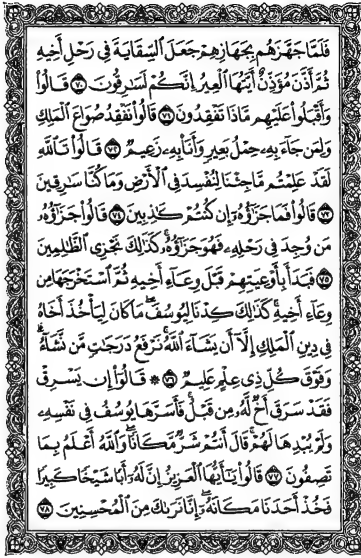 فَلَمَّا جَهَّزَهُم بِجَهَازِهِمْ جَعَلَ ٱلسِّقَايَةَ فِى رَحْلِ أَخِيهِ
ثُمَّ أَذَّنَ مُؤَذِّنٌ أَيَّتُهَا ٱلْعِيرُ إِنَّكُمْ لَسَٰرِقُونَ ٧٠ قَالُوا۟
وَأَقْبَلُوا۟ عَلَيْهِم مَّاذَا تَفْقِدُونَ ٧١ قَالُوا۟ نَفْقِدُ صُوَاعَ ٱلْمَلِكِ
وَلِمَن جَآءَ بِهِۦ حِمْلُ بَعِيرٍ وَأَنَا۠ بِهِۦ زَعِيمٌ ٧٢ قَالُوا۟ تَٱللَّهِ
لَقَدْ عَلِمْتُم مَّا جِئْنَا لِنُفْسِدَ فِى ٱلْأَرْضِ وَمَا كُنَّا سَٰرِقِينَ
٧٣ قَالُوا۟ فَمَا جَزَٰٓؤُهُۥٓ إِن كُنتُمْ كَٰذِبِينَ ٧٤ قَالُوا۟ جَزَٰٓؤُهُۥ
مَن وُجِدَ فِى رَحْلِهِۦ فَهُوَ جَزَٰٓؤُهُۥ كَذَٰلِكَ نَجْزِى ٱلظَّٰلِمِينَ
٧٥ فَبَدَأَ بِأَوْعِيَتِهِمْ قَبْلَ وِعَآءِ أَخِيهِ ثُمَّ ٱسْتَخْرَجَهَا مِن
وِعَآءِ أَخِيهِ كَذَٰلِكَ كِدْنَا لِيُوسُفَ مَا كَانَ لِيَأْخُذَ أَخَاهُ
فِى دِينِ ٱلْمَلِكِ إِلَّآ أَن يَشَآءَ ٱللَّهُ نَرْفَعُ دَرَجَٰتٍ مَّن نَّشَآءُ
وَفَوْقَ كُلِّ ذِى عِلْمٍ عَلِيمٌ ٧٦ ۞ قَالُوٓا۟ إِن يَسْرِقْ
فَقَدْ سَرَقَ أَخٌ لَّهُۥ مِن قَبْلُ فَأَسَرَّهَا يُوسُفُ فِى نَفْسِهِۦ
وَلَمْ يُبْدِهَا لَهُمْ قَالَ أَنتُمْ شَرٌّ مَّكَانًا وَٱللَّهُ أَعْلَمُ بِمَا
تَصِفُونَ ٧٧ قَالُوا۟ يَٰٓأَيُّهَا ٱلْعَزِيزُ إِنَّ لَهُۥٓ أَبًا شَيْخًا كَبِيرًا
فَخُذْ أَحَدَنَا مَكَانَهُۥٓ إِنَّا نَرَىٰكَ مِنَ ٱلْمُحْسِنِينَ ٧٨